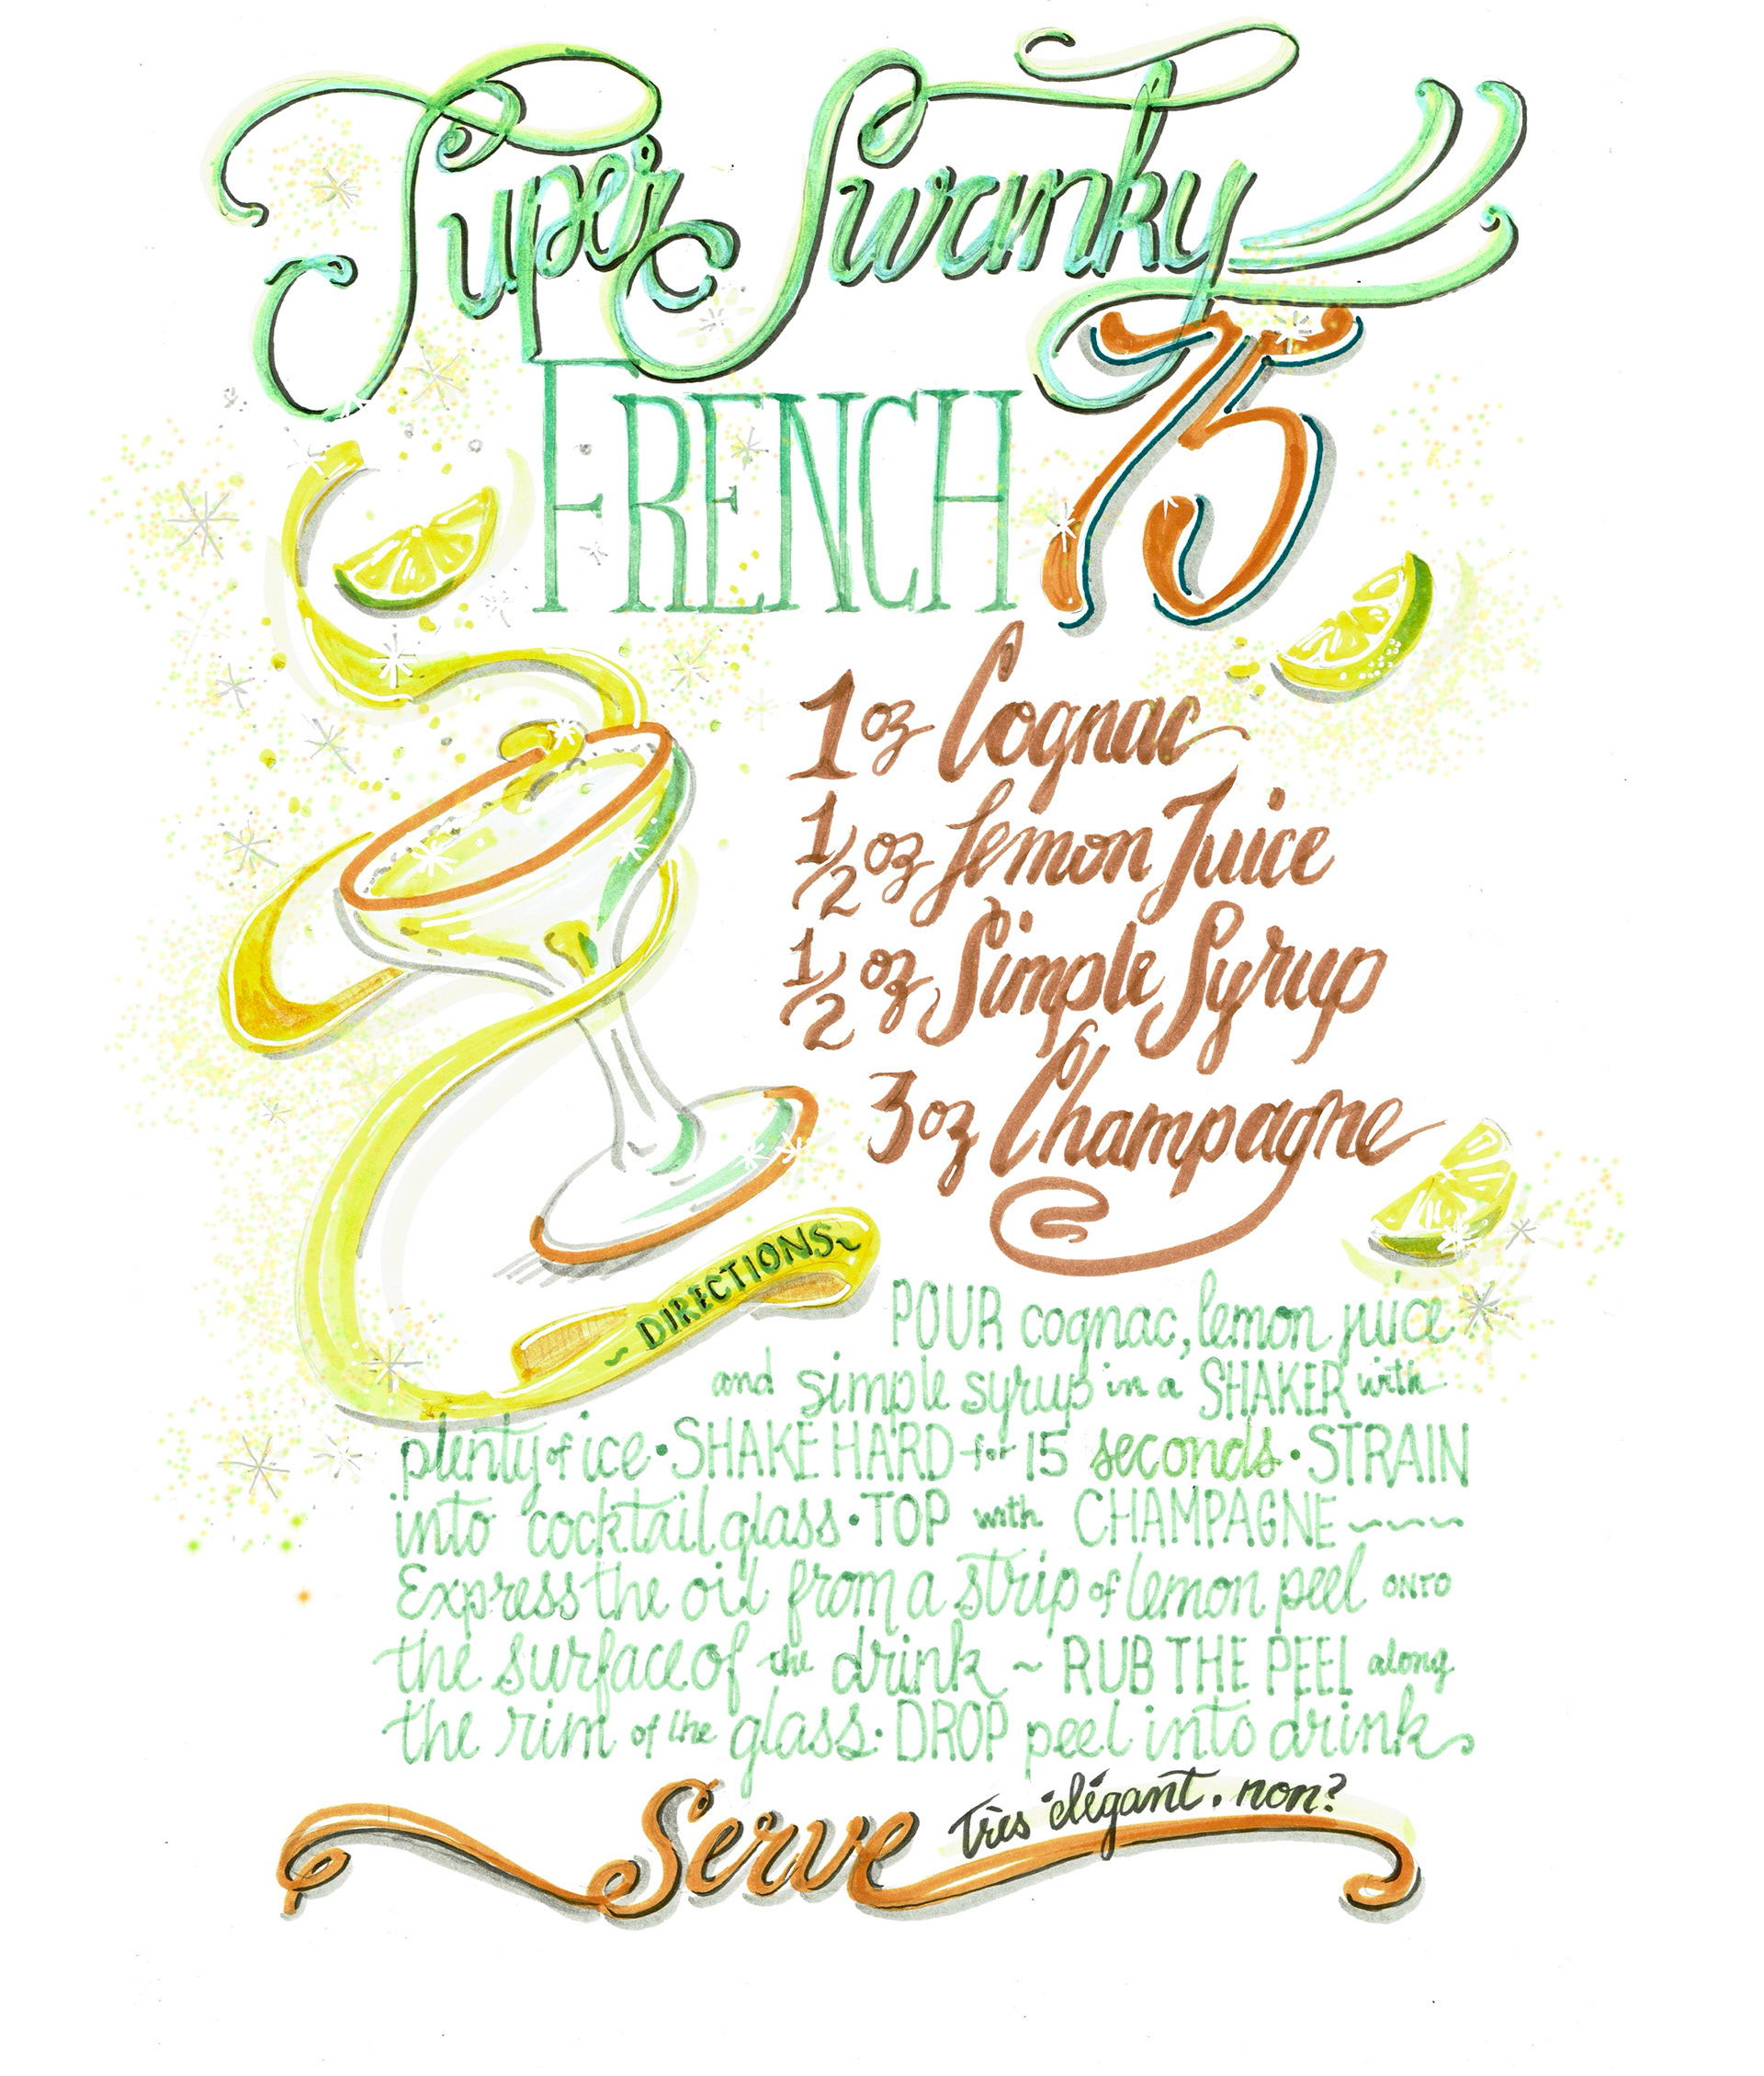 Super Swanky
FRENCH 75
1 oz Cognac
1/2 oz Lemon Juice
1/2 oz Simple Syrup
3 oz Champagne
~ DIRECTIONS ~
POUR cognac, lemon juice
and simple syrup in a SHAKER with
plenty of ice • SHAKE HARD for 15 seconds • STRAIN
into cocktail glass • TOP with CHAMPAGNE ~~~~
Express the oil from a strip of lemon peel ONTO
the surface of the drink ~ RUB THE PEEL along
the rim of the glass • DROP peel into drink
Serve Très élégant, non?